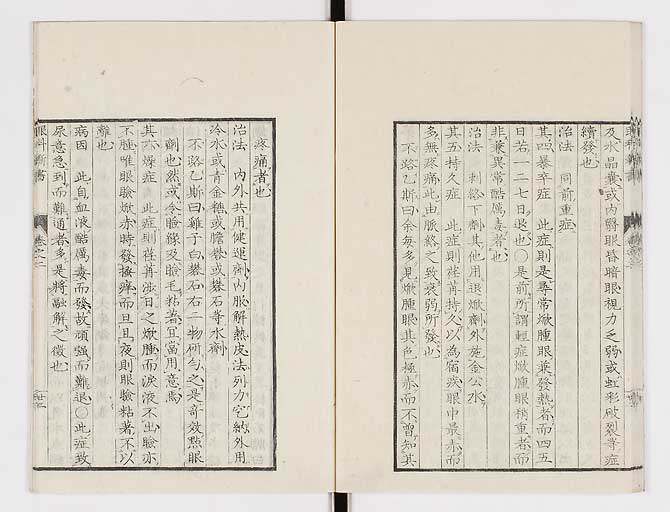 及水晶囊或内䏿眼昏暗眼視力乏弱或虹彩破裂等症
續發也
治法　同前重症
其四暴卒症　此症則是尋常焮腫眼兼發熱者而四五
日若一二七日退也〇是前所謂輕症焮腫眼稍重者而
非兼異常酷厲毒者也
治法　刺絡下劑其他用退焮劑外施金公水
其五持久症　此症則荏苒持久以為宿疾眼中最赤而
多無疼痛此由脈絡之致衰弱所發也
不路乙斯曰余每多見焮腫眼其色極赤而不曾知其
疼痛者也
治法　内外共用健運劑内服解熱皮法列力它納外用
冷水或青金糖或膽礬或礬石等水劑
不路乙斯曰雞子白礬石右二物研匀之是奇效點眼
劑也然或令瞼緣及瞼毛粘著宜當用意焉
其六燥症　此症則荏苒涉日之焮腫而淚液不出瞼亦
不腫唯眼瞼焮赤時發搔痒而且且夜則眼瞼粘著不以
離也
病因　此自血液酷厲毒而發故頑強而難退〇此症致
尿意急到而難通者多是將融解之徵也
眼科新書
卷之二